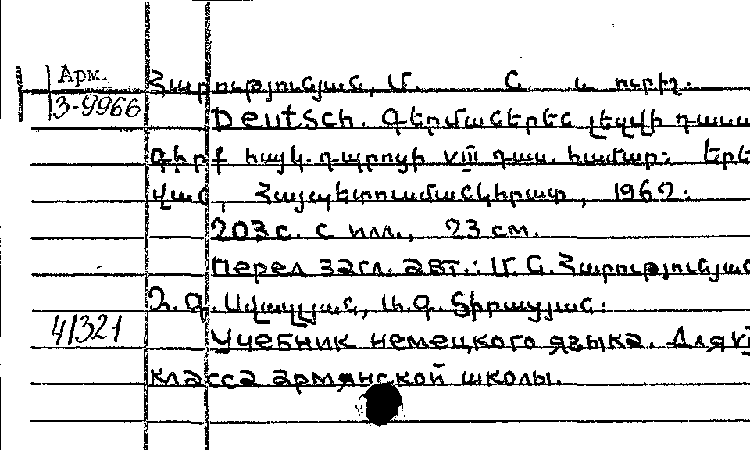 Арм.
3-9966
Հարությունյան, Մ. Ս. և ուրիշ.
Deutsch. Գերմաներեն լեզվի դաս
գիրք հայկ. դպրոցի VIII դաս. համար: Երե
վան, Հայպետուսմանկհրատ, 1962:
203 с. с илл., 23 см.
Перел загл. авт.: Մ. Ս. Հարությունյան
Հ. Գ. Ավագյան, Ա. Գ. Տիրացյան:
41321
Учебник немецкого языка. Для VI
класса армянской школы.